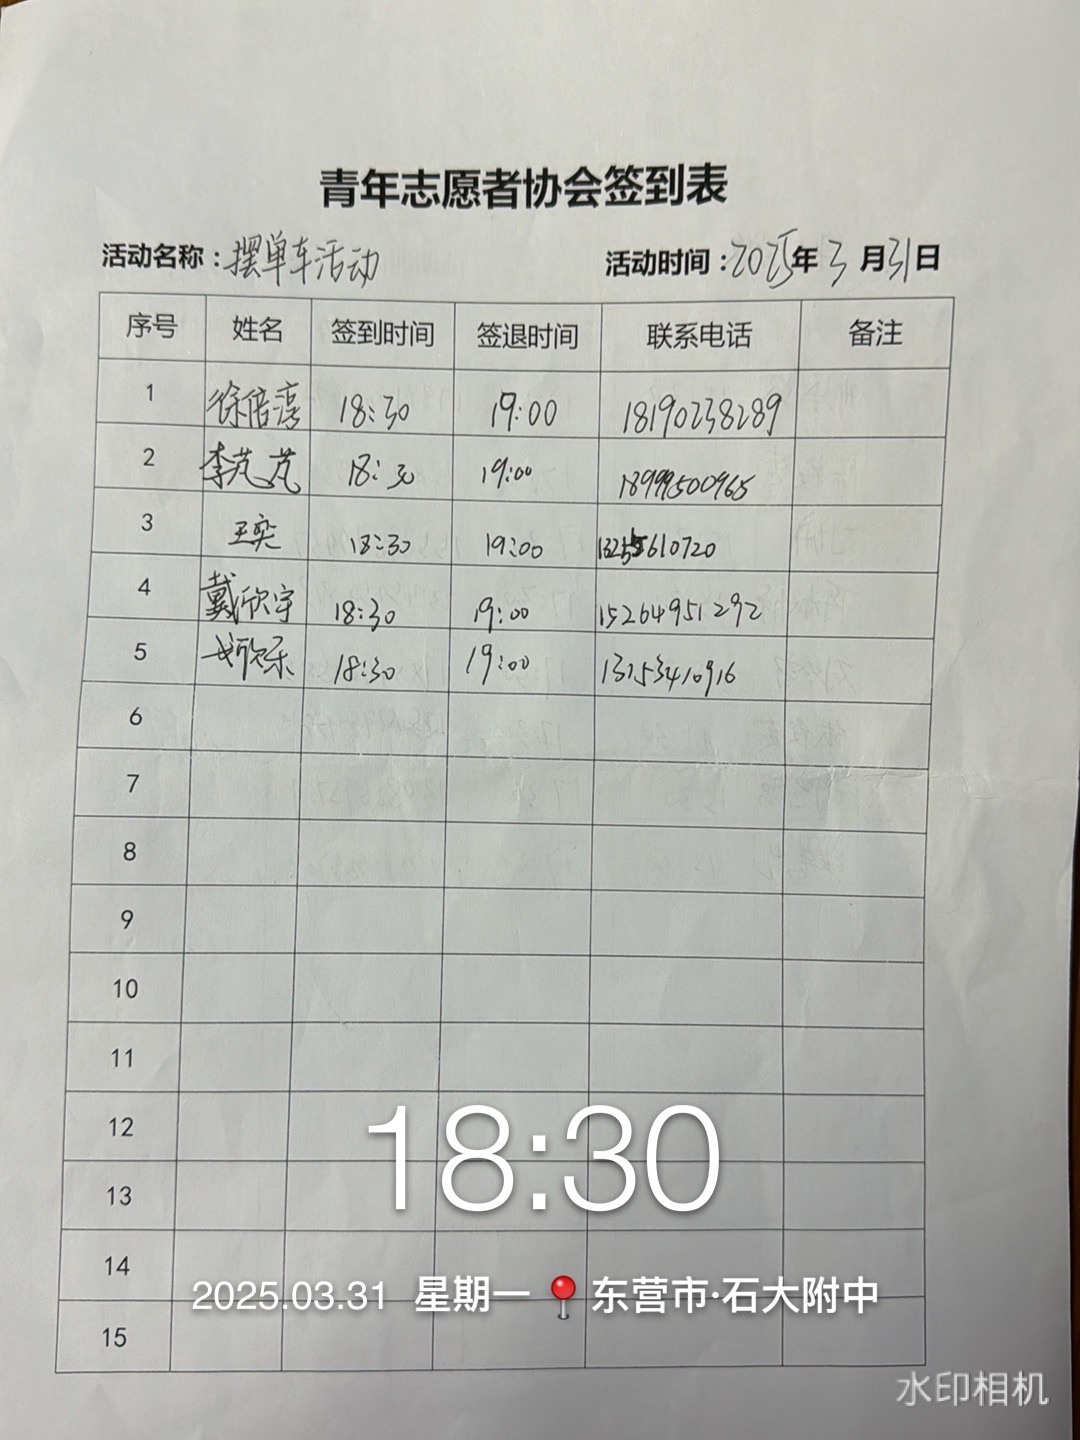 青年志愿者协会签到表
活动名称：摆单车活动 活动时间：2025年3月31日
序号 姓名 签到时间 签退时间 联系电话 备注
1 徐倍淳 18:30 19:00 18190238289
2 李芃芃 18:30 19:00 18999500965
3 王奕 18:30 19:00 610720
4 戴欣宇 18:30 19:00 15264951292
5 18:30 19:00 13153410916
6
7
8
9
10
11
12
18:30
13
14
2025.03.31 星期一 东营市·石大附中
15
水印相机